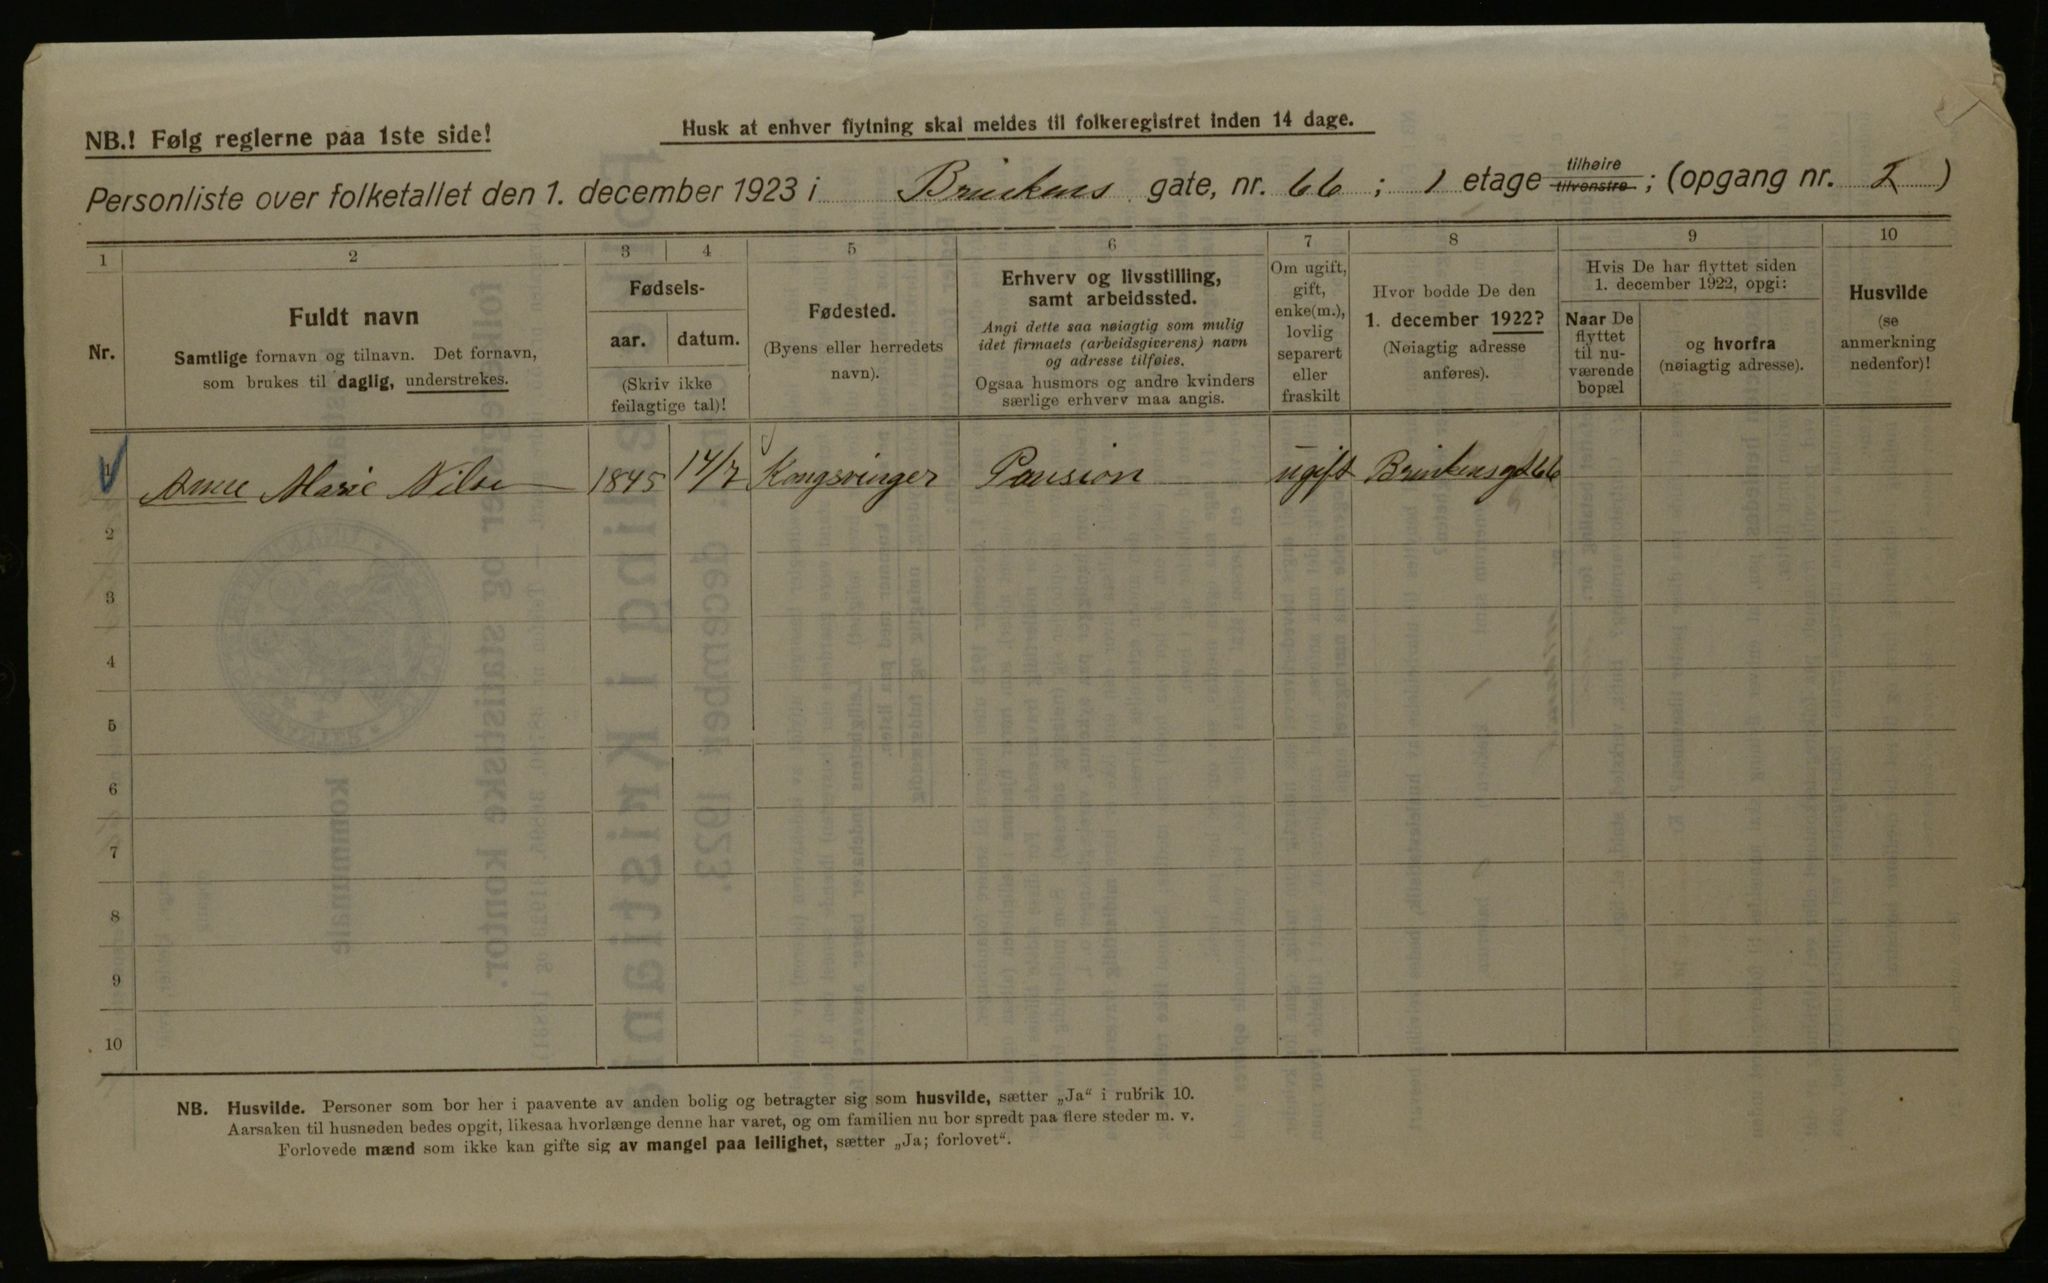 NB.! Følg reglerne paa 1ste side!
Husk at enhver flytning skal meldes til folkeregistret inden 14 dage.
Personliste over folketallet den 1. december 1923 i Brinkens gate, nr. 66; 1 etage tilhøire tilvenstre; (opgang nr. I)
1 2 3 4 5 6 7 8 9 10
Nr.
Fuldt navn
Samtlige fornavn og tilnavn. Det fornavn,
som brukes til daglig, understrekes.
Fødsels-
aar. datum.
(Skriv ikke
feilagtige tal)!
Fødested.
(Byens eller herredets
navn).
Erhverv og livsstilling,
samt arbeidssted.
Angi dette saa nøiagtig som mulig
idet firmaets (arbeidsgiverens) navn
og adresse tilføies.
Ogsaa husmors og andre kvinders
særlige erhverv maa angis.
Om ugift,
gift,
enke(m.),
lovlig
separert
eller
fraskilt
Hvor bodde De den
1. december 1922?
(Nøiagtig adresse
anføres).
Hvis De har flyttet siden
1. december 1922, opgi:
Naar De
flyttet
til nu-
værende
bopæl
og hvorfra
(nøiagtig adresse).
Husvilde
(se
anmerkning
nedenfor)!
1 Anne Marie Nilse 1845 14/7 Kongsvinger Pansion ugift Brinkensgt 66
2
3
4
5
6
7
8
9
10
NB. Husvilde. Personer som bor her i paavente av anden bolig og betragter sig som husvilde, sætter „Ja“ i rubrik 10.
Aarsaken til husnøden bedes opgit, likesaa hvorlænge denne har varet, og om familien nu bor spredt paa flere steder m. v.
Forlovede mænd som ikke kan gifte sig av mangel paa leilighet, sætter „Ja; forlovet“.